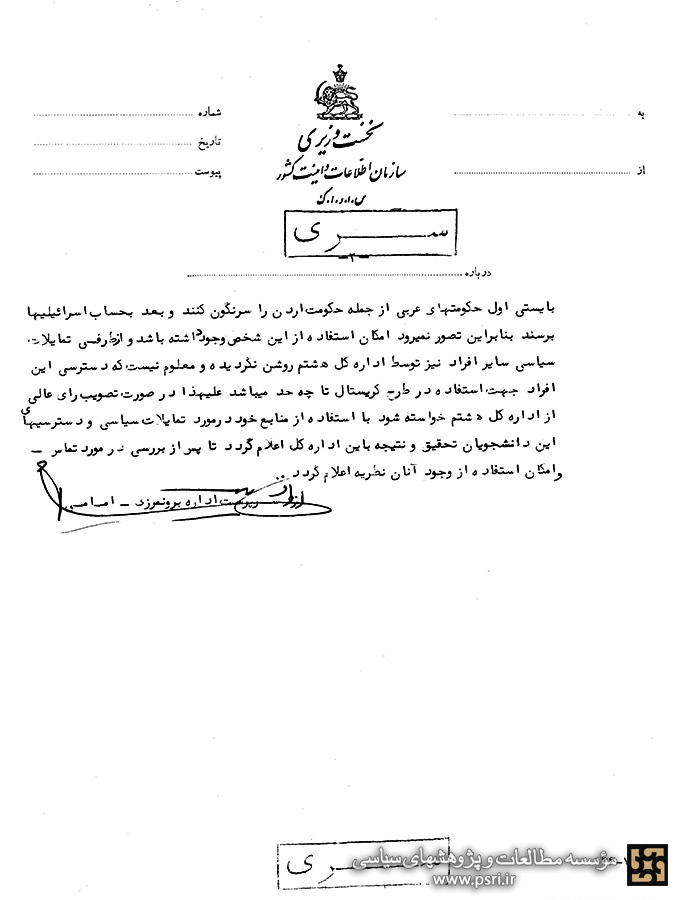 نخست وزیری
سازمان اطلاعات و امنیت کشور
س.ا.و.ا.ک
به
از
شماره
تاریخ
پیوست
سری
-۲-
درباره
بایستی اول حکومتهای عربی از جمله حکومت اردن را سرنگون کنند و بعد بحساب اسرائیلیها
برسند بنابراین تصور نمیرود امکان استفاده از این شخص وجود داشته باشد و ازطرفی تمایلات
سیاسی سایر افراد نیز توسط اداره کل هشتم روشن نگردیده و معلوم نیست که دسترسی این
افراد جهت استفاده در طرح کریستال تا چه حد میباشد علیهذا در صورت تصویب رای عالی
از اداره کل هشتم خواسته شود با استفاده از منابع خود در مورد تمایلات سیاسی و دسترسیهای
این دانشجویان تحقیق و نتیجه باین اداره کل اعلام گردد تا پس از بررسی در مورد تماس –
و امکان استفاده از وجود آنان نظریه اعلام گردد ..
سرپرست اداره برونمرزی – امامی
سری
مؤسسه مطالعات و پژوهشهای سیاسی
www.psri.ir